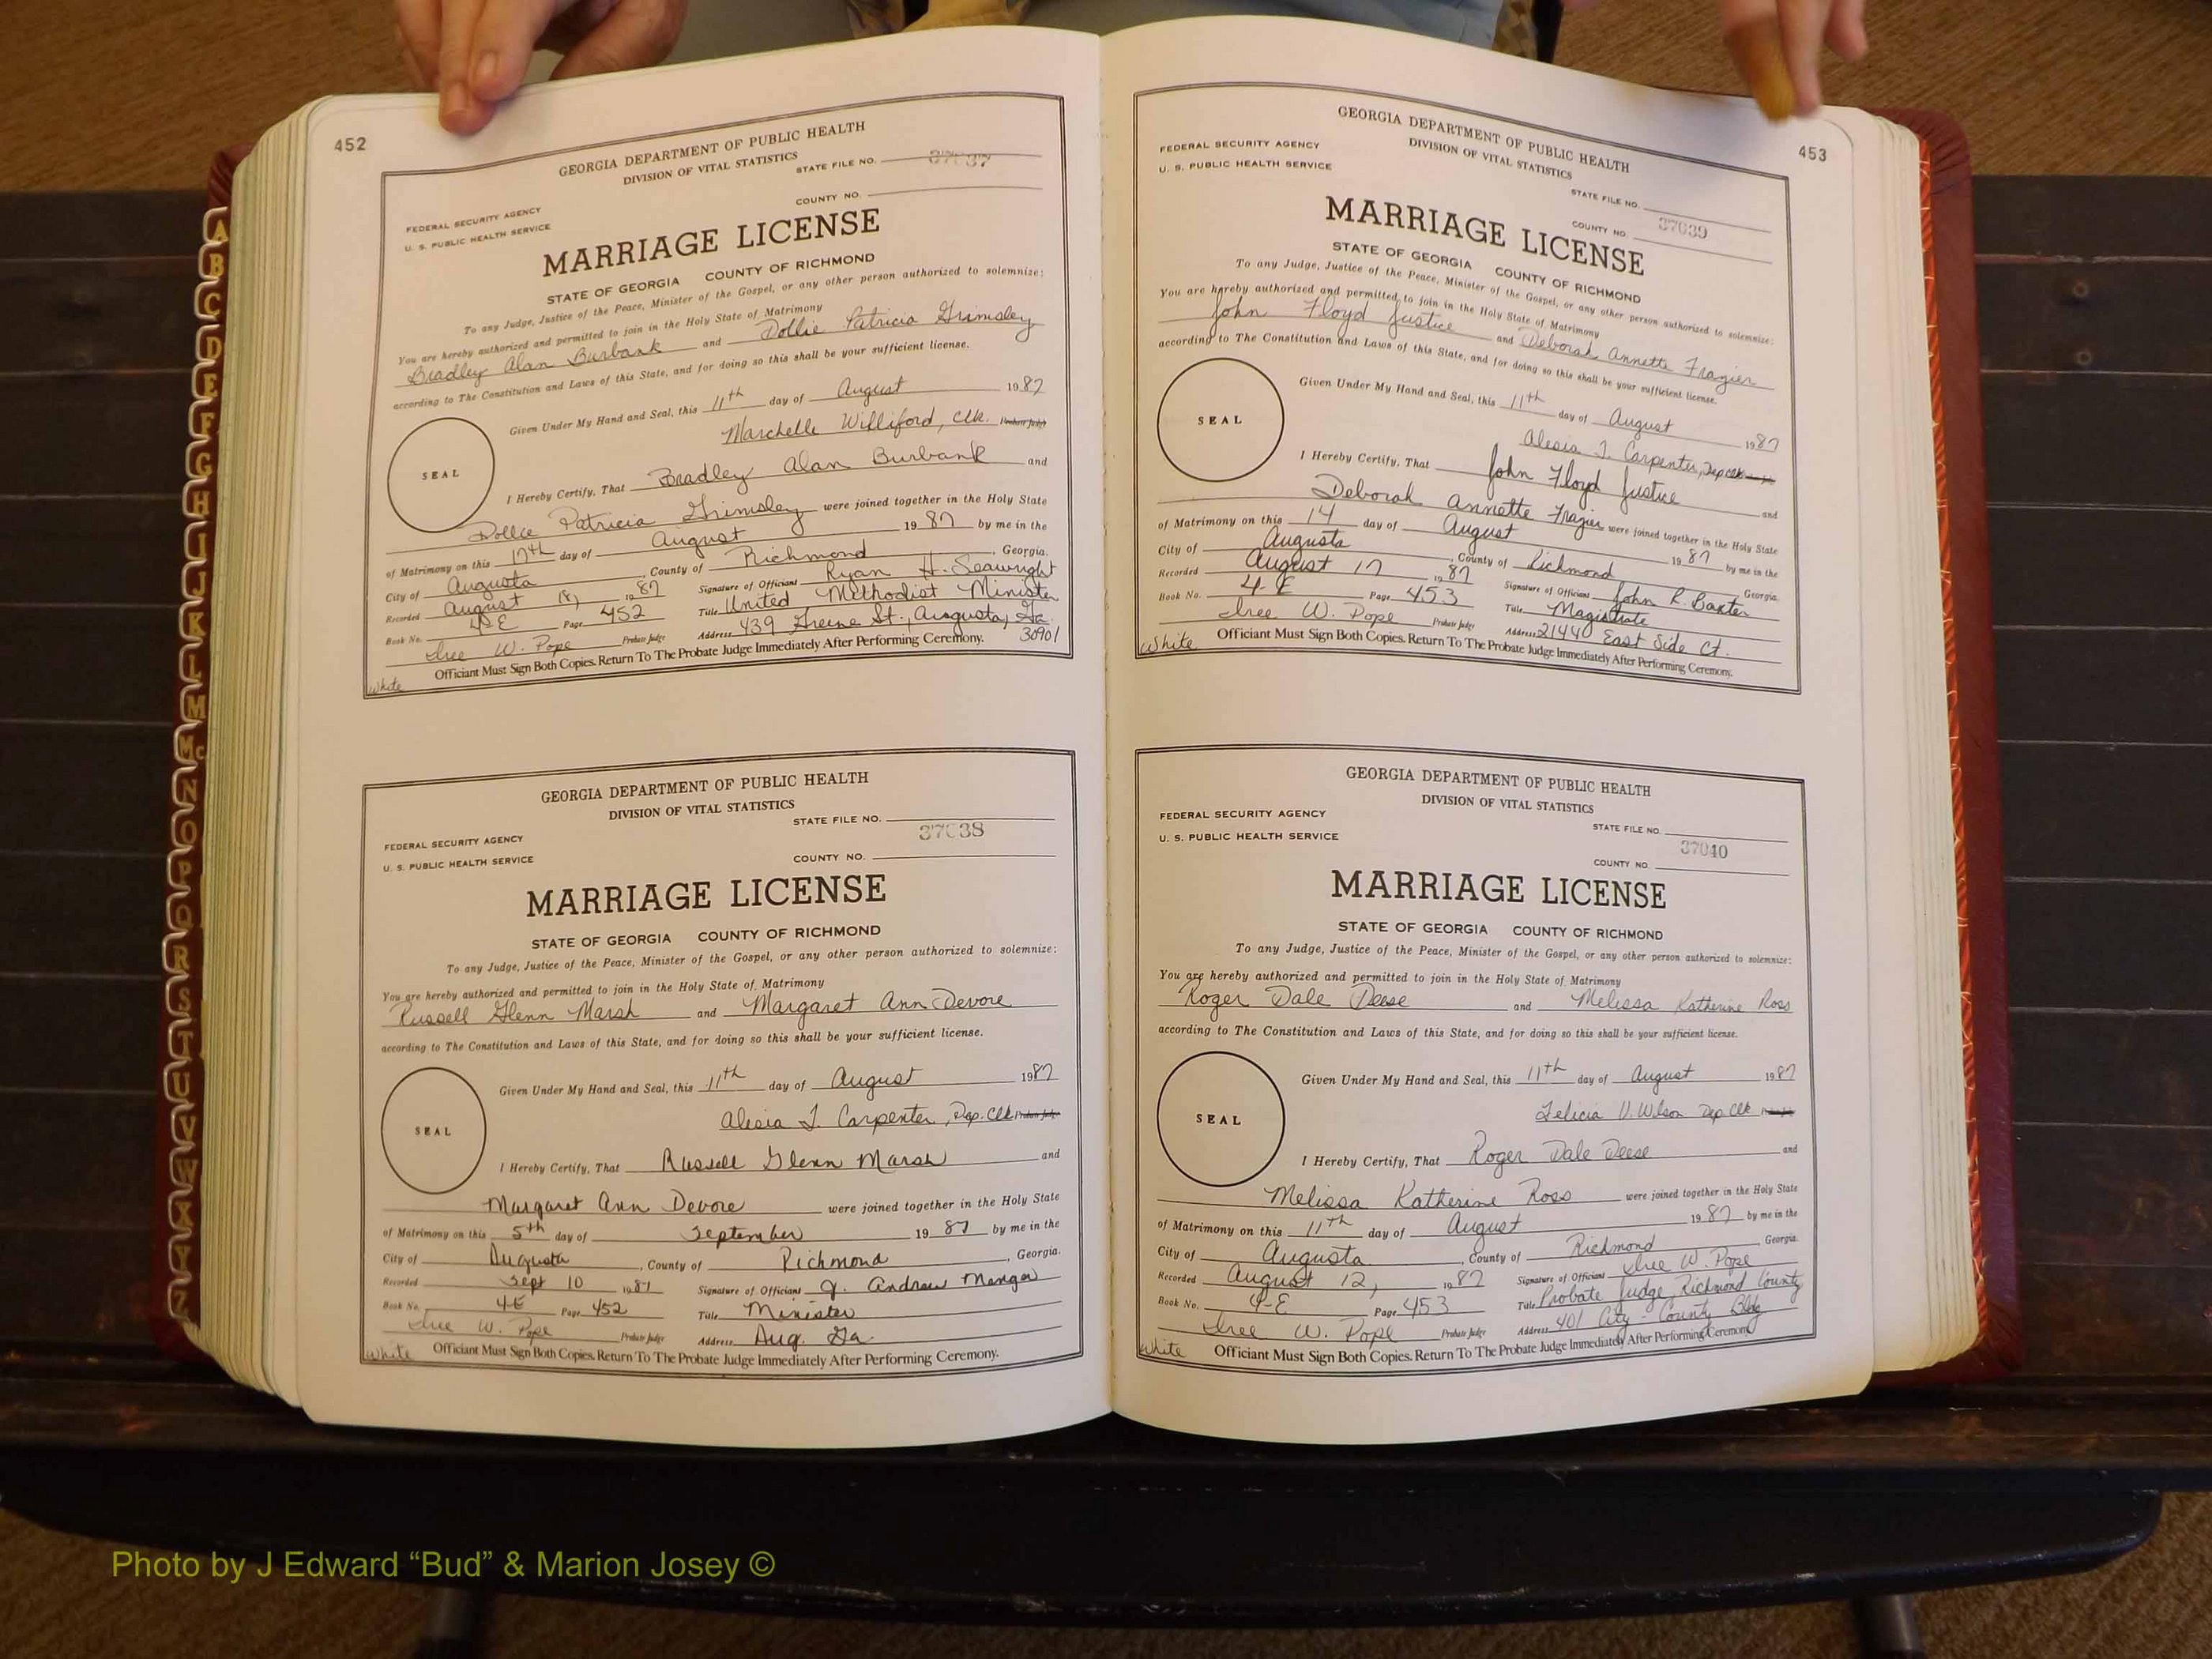 452
GEORGIA DEPARTMENT OF PUBLIC HEALTH
DIVISION OF VITAL STATISTICS
STATE FILE NO. 37037
COUNTY NO.
FEDERAL SECURITY AGENCY
U. S. PUBLIC HEALTH SERVICE
MARRIAGE LICENSE
STATE OF GEORGIA COUNTY OF RICHMOND
To any Judge, Justice of the Peace, Minister of the Gospel, or any other person authorized to solemnize:
You are hereby authorized and permitted to join in the Holy State of Matrimony
Bradley Alan Burbank and Dollie Patricia Grimsley
according to The Constitution and Laws of this State, and for doing so this shall be your sufficient license.
Given Under My Hand and Seal, this 11th day of August 1987
Marchelle Williford, Clk. Probate Judge
SEAL
I Hereby Certify, That Bradley Alan Burbank and
Dollie Patricia Grimsley were joined together in the Holy State
of Matrimony on this 17th day of August 1987 by me in the
City of Augusta, County of Richmond, Georgia.
Recorded August 18, 1987 Signature of Officiant Ryan H. Seawright
Book No. 4-E Page 452 Title United Methodist Minister
Iree W. Pope Probate Judge Address 439 Greene St., Augusta, Ga. 30901
Officiant Must Sign Both Copies. Return To The Probate Judge Immediately After Performing Ceremony.
White
GEORGIA DEPARTMENT OF PUBLIC HEALTH
DIVISION OF VITAL STATISTICS
STATE FILE NO. 37038
FEDERAL SECURITY AGENCY
U. S. PUBLIC HEALTH SERVICE
COUNTY NO.
MARRIAGE LICENSE
STATE OF GEORGIA COUNTY OF RICHMOND
To any Judge, Justice of the Peace, Minister of the Gospel, or any other person authorized to solemnize:
You are hereby authorized and permitted to join in the Holy State of Matrimony
Russell Glenn Marsh and Margaret Ann Devore
according to The Constitution and Laws of this State, and for doing so this shall be your sufficient license.
Given Under My Hand and Seal, this 11th day of August 1987
Alesia J. Carpenter, Dep. Clk Probate Judge
SEAL
I Hereby Certify, That Russell Glenn Marsh and
Margaret Ann Devore were joined together in the Holy State
of Matrimony on this 5th day of September 1987 by me in the
City of Augusta, County of Richmond, Georgia.
Recorded Sept 10 1987 Signature of Officiant J. Andrew Menger
Book No. 4-E Page 452 Title Minister
Iree W. Pope Probate Judge Address Aug. Ga.
Officiant Must Sign Both Copies. Return To The Probate Judge Immediately After Performing Ceremony.
White
453
GEORGIA DEPARTMENT OF PUBLIC HEALTH
DIVISION OF VITAL STATISTICS
FEDERAL SECURITY AGENCY
U. S. PUBLIC HEALTH SERVICE
STATE FILE NO.
COUNTY NO. 37039
MARRIAGE LICENSE
STATE OF GEORGIA COUNTY OF RICHMOND
To any Judge, Justice of the Peace, Minister of the Gospel, or any other person authorized to solemnize:
You are hereby authorized and permitted to join in the Holy State of Matrimony
John Floyd Justice and Deborah Annette Frazier
according to The Constitution and Laws of this State, and for doing so this shall be your sufficient license.
Given Under My Hand and Seal, this 11th day of August 1987
Alesia J. Carpenter, Dep Clk
SEAL
I Hereby Certify, That John Floyd Justice and
Deborah Annette Frazier were joined together in the Holy State
of Matrimony on this 14 day of August 1987 by me in the
City of Augusta, County of Richmond Georgia.
Recorded August 17 1987 Signature of Officiant John R. Baxter
Book No. 4-E Page 453 Title Magistrate
Iree W. Pope Probate Judge Address 2144 East Side Ct.
Officiant Must Sign Both Copies. Return To The Probate Judge Immediately After Performing Ceremony.
White
GEORGIA DEPARTMENT OF PUBLIC HEALTH
DIVISION OF VITAL STATISTICS
FEDERAL SECURITY AGENCY
U. S. PUBLIC HEALTH SERVICE
STATE FILE NO.
37040
COUNTY NO.
MARRIAGE LICENSE
STATE OF GEORGIA COUNTY OF RICHMOND
To any Judge, Justice of the Peace, Minister of the Gospel, or any other person authorized to solemnize:
You are hereby authorized and permitted to join in the Holy State of Matrimony
Roger Dale Deese and Melissa Katherine Ross
according to The Constitution and Laws of this State, and for doing so this shall be your sufficient license.
Given Under My Hand and Seal, this 11th day of August 1987
Felicia V. Wilson Dep Clk
SEAL
I Hereby Certify, That Roger Dale Deese and
Melissa Katherine Ross were joined together in the Holy State
of Matrimony on this 11th day of August 1987 by me in the
City of Augusta, County of Richmond Georgia.
Recorded August 12, 1987 Signature of Officiant Iree W. Pope
Book No. 4-E Page 453 Title Probate Judge, Richmond County
Iree W. Pope Probate Judge Address 401 City-County Bldg
Officiant Must Sign Both Copies. Return To The Probate Judge Immediately After Performing Ceremony.
White
A
B
C
D
E
F
G
H
I
J
K
L
M
Mc
N
O
P
Q
R
S
T
U
V
W
X
Y
Z
Photo by J Edward “Bud” & Marion Josey ©